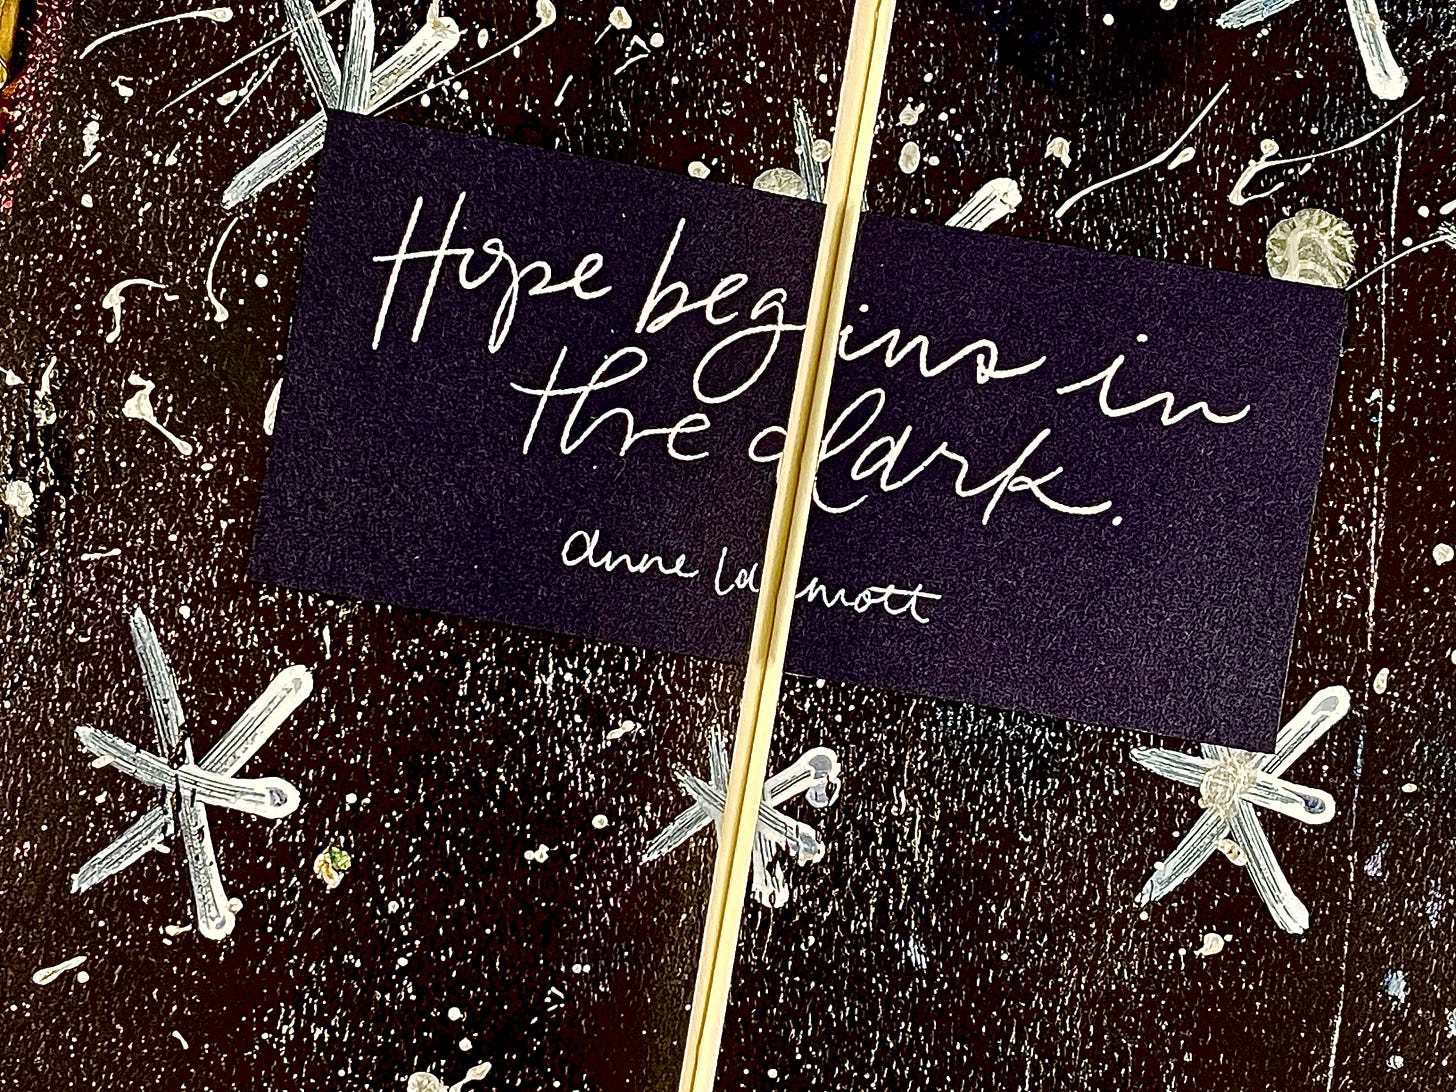 Hope begins in
the dark.
anne lamott